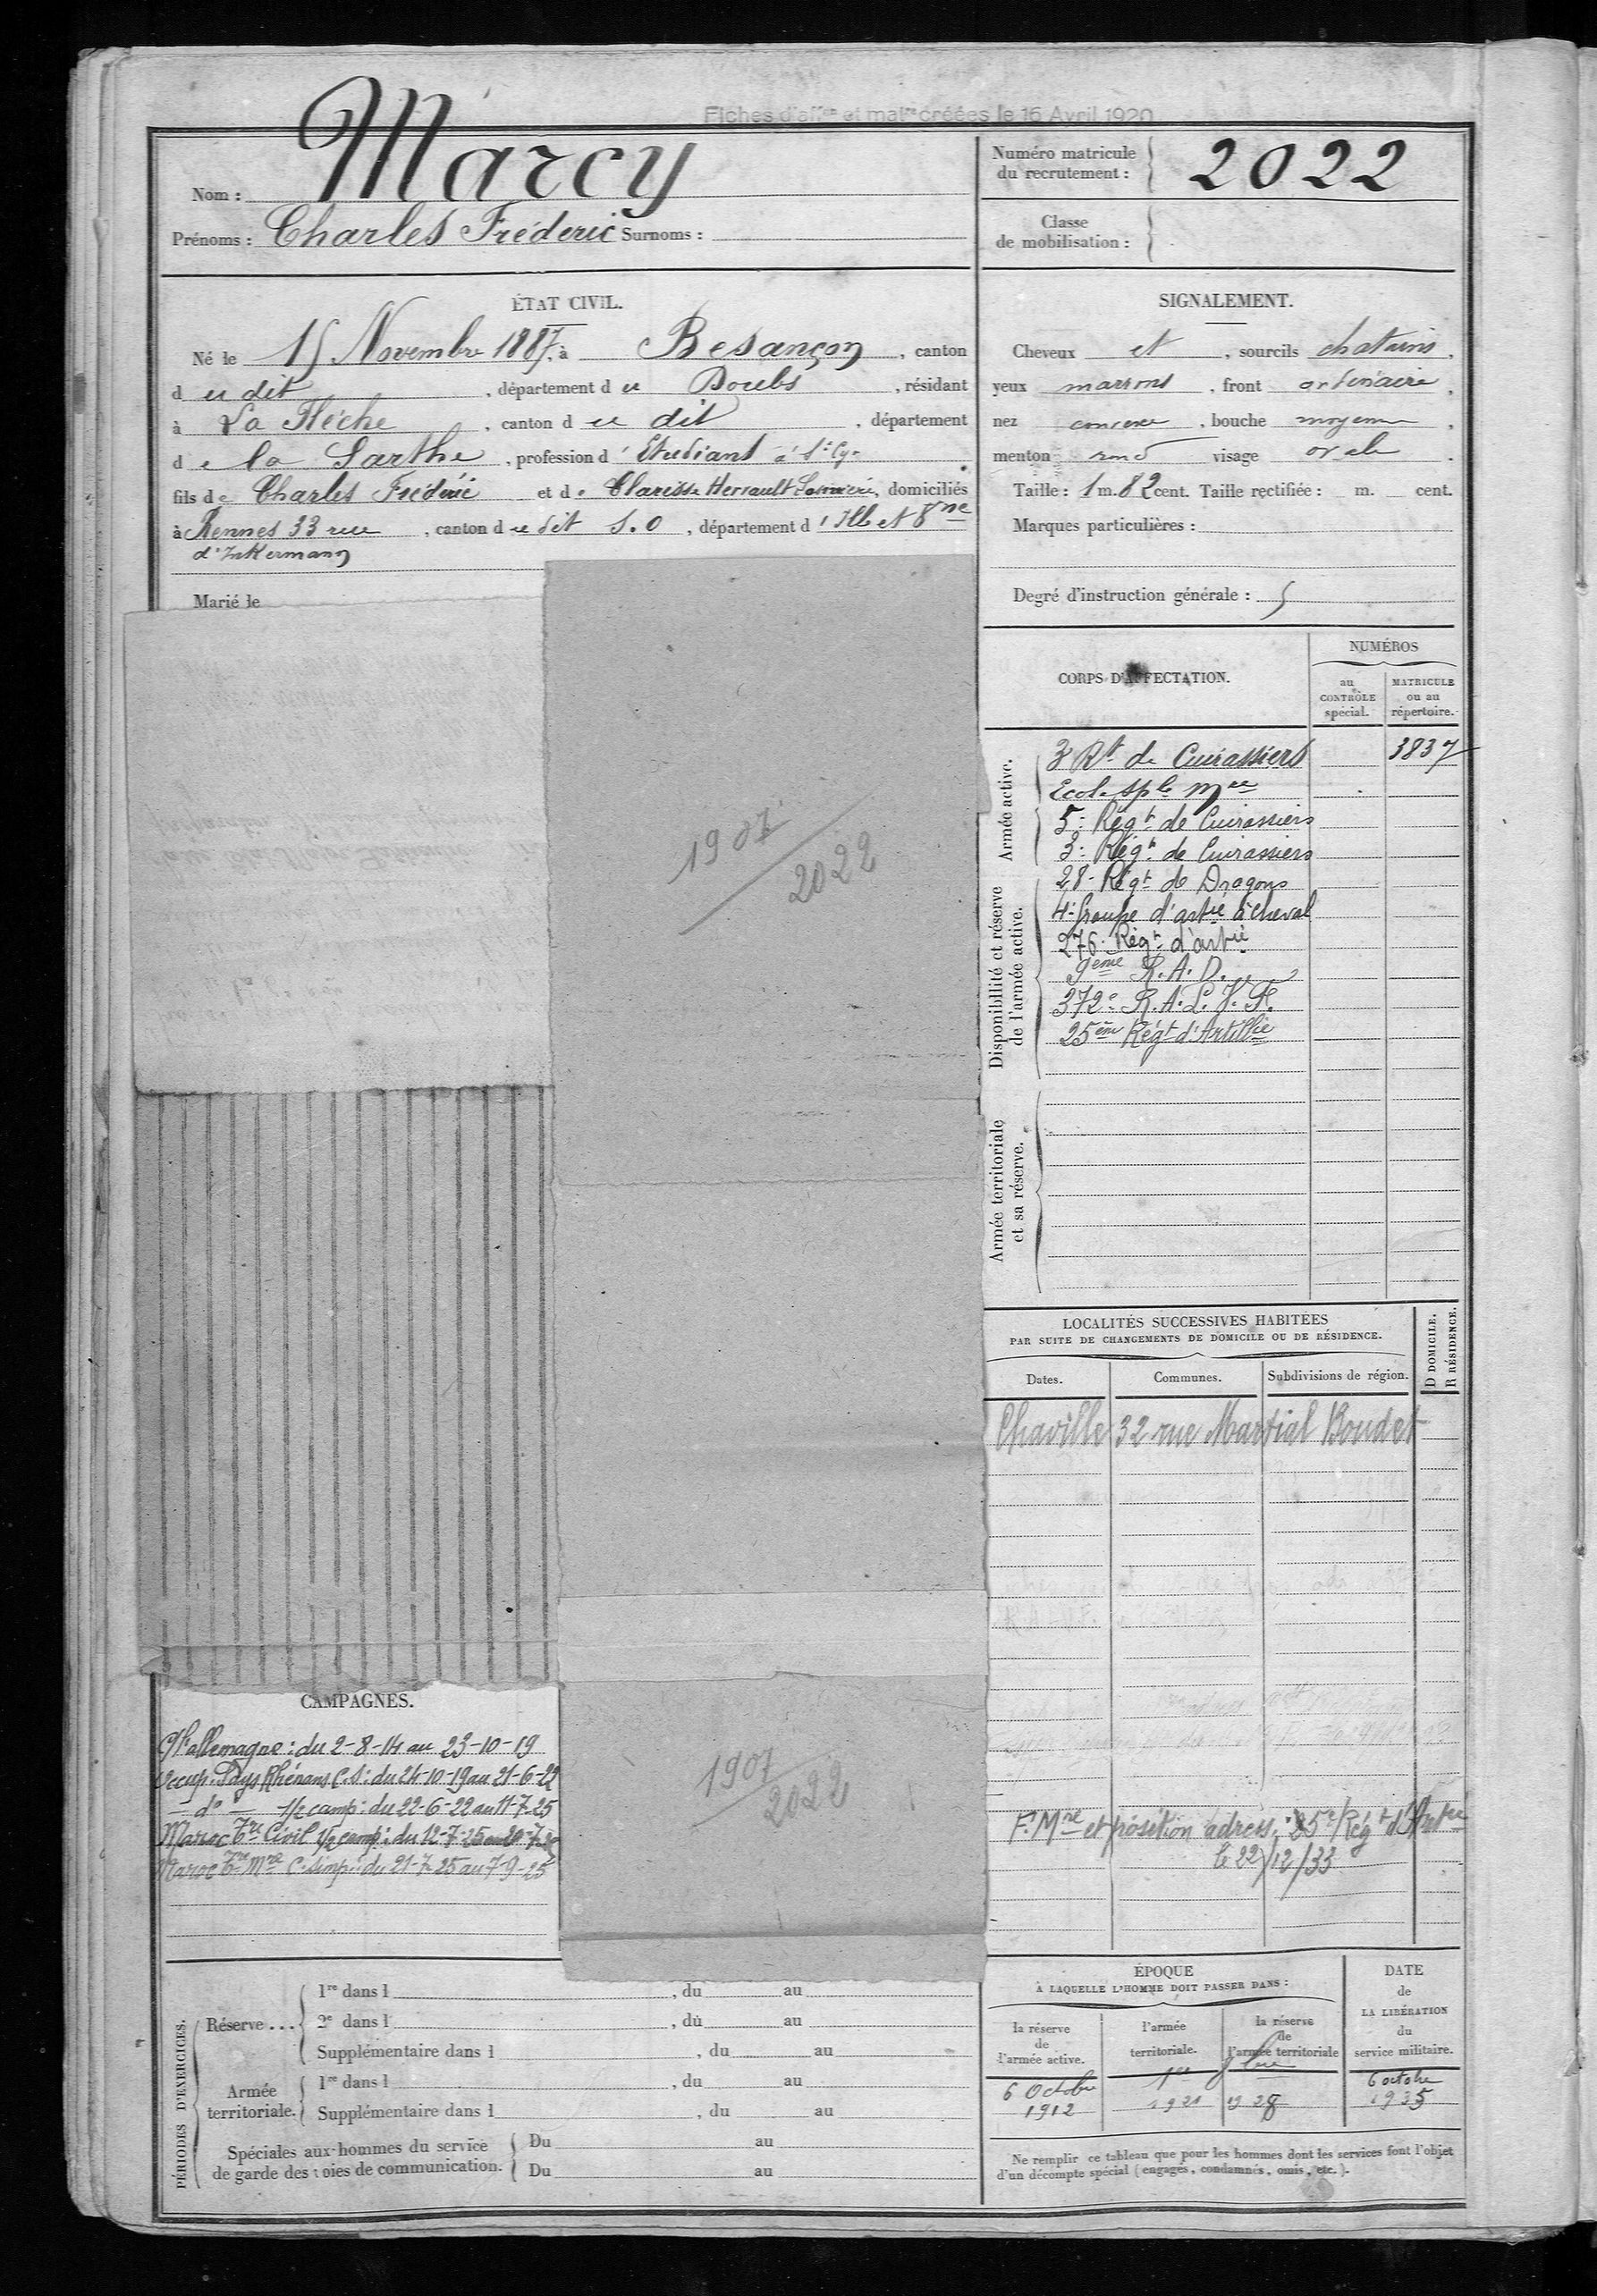 Fiches d'aff<sup>on</sup> et mat<sup>le</sup> créées le 16 Avril 1920
Nom : Marcy
Prénoms : Charles Fréderic Surnoms :
Numéro matricule
du recrutement : 2022
Classe
de mobilisation :
ÉTAT CIVIL.
Né le 15 Novembre 1887, à Besançon, canton
du dit, département du Doubs, résidant
à La Flèche, canton du dit, département
de la Sarthe, profession d'Etudiant à St Cyr
fils de Charles Fréderic et de Clarisse Hersault, domiciliés
à Rennes 33 rue, canton du dit S.O, département d'Ille et Vne
d'Inkermann
Marié le
SIGNALEMENT.
Cheveux et, sourcils chatains,
yeux marrons, front ordinaire,
nez convexe, bouche moyenne,
menton rond visage ovale.
Taille : 1 m. 82 cent. Taille rectifiée : m. cent.
Marques particulières :
Degré d'instruction générale : 5
CORPS D'AFFECTATION.
NUMÉROS
au
CONTRÔLE
spécial.
MATRICULE
ou au
répertoire.
Armée active.
3 Rt de Cuirassiers 3837
Ecole Sple Mre
5e Régt de Cuirassiers
3e Régt de Cuirassiers
Disponibilité et réserve
de l'armée active.
28e Régt de Dragons
4e Groupe d'artie à cheval
276e Régt d'artie
9ème R.A.D.
372e R.A.L.V.F.
25ème Régt d'Artillie
Armée territoriale
et sa réserve.
1907
2022
LOCALITÉS SUCCESSIVES HABITÉES
PAR SUITE DE CHANGEMENTS DE DOMICILE OU DE RÉSIDENCE.
Dates.
Communes.
Subdivisions de région.
D DOMICILE.
R RÉSIDENCE.
Chaville 32 rue Martial Boudet
F. Mre et position adress. : 25e Régt d'Artie
le 22/12/33
CAMPAGNES.
Ct allemagne : du 2-8-14 au 23-10-19
Occup. Pays Rhénans C.S : du 24-10-19 au 21-6-22
— do — 1/2 camp : du 22-6-22 au 11-7-25
Maroc Tre Civil 1/2 camp : du 12-7-25 au 20-7-25
Maroc Tre Mre C. simp : du 21-7-25 au 7-9-25
1907
2022
PÉRIODES D'EXERCICES.
Réserve ...
1re dans l , du au
2e dans l , du au
Supplémentaire dans l , du au
Armée
territoriale.
1re dans l , du au
Supplémentaire dans l , du au
Spéciales aux hommes du service
de garde des voies de communication.
Du au
Du au
ÉPOQUE
À LAQUELLE L'HOMME DOIT PASSER DANS :
la réserve
de
l'armée active.
l'armée
territoriale.
la réserve
de
l'armée territoriale
DATE
de
LA LIBÉRATION
du
service militaire.
6 Octobre
1912
1921
1928
6 octobre
1935
Ne remplir ce tableau que pour les hommes dont les services font l'objet
d'un décompte spécial (engagés, condamnés, omis, etc.).